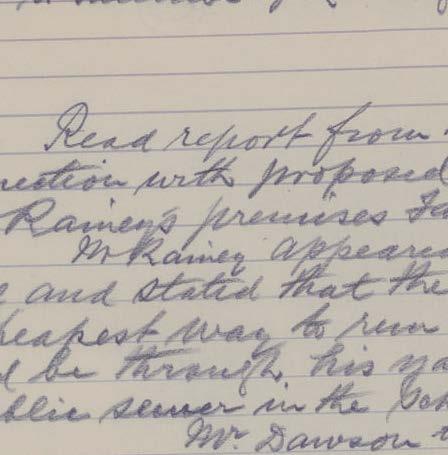 Read report from
nection with proposed
Rainey's premises Fa
Mr Rainey appeared
e and stated that the
heapest way to run
d be through his ya
ublic sewer in the Sch
Mr. Dawson